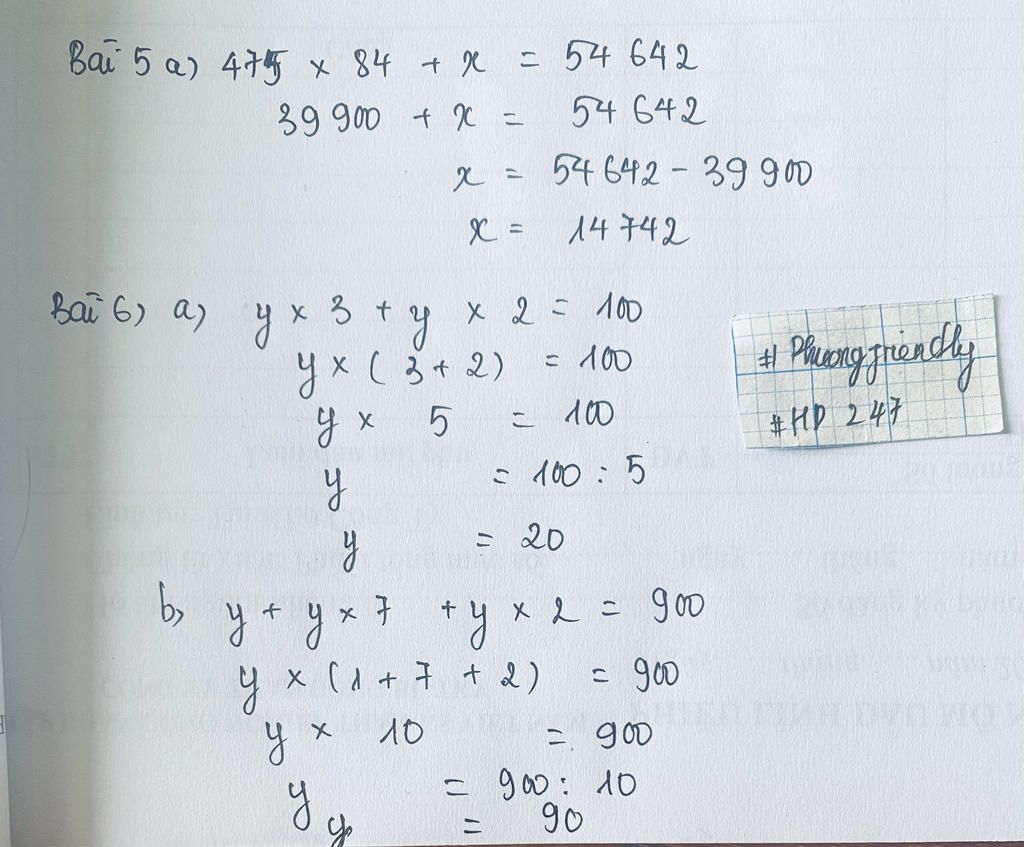 Bài 5 a) 475 × 84 + x = 54 642
39 900 + x = 54 642
x = 54 642 - 39 900
x = 14 742
Bài 6) a) y × 3 + y × 2 = 100
y × ( 3 + 2 ) = 100
y × 5 = 100
y = 100 : 5
y = 20
b) y + y × 7 + y × 2 = 900
y × (1 + 7 + 2) = 900
y × 10 = 900
y = 900 : 10
y = 90
# Phuongfriendly
#HD 247